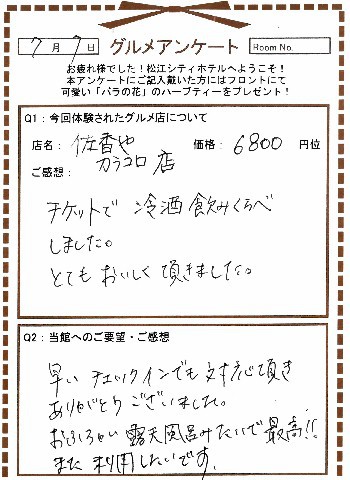 7月7日 グルメアンケート Room No.
お疲れ様でした！松江シティホテルへようこそ！
本アンケートにご記入戴いた方にはフロントにて
可愛い「バラの花」のハーブティーをプレゼント！
Q1：今回体験されたグルメ店について
店名： 佐香や 価格： 6800 円位
カラコロ店
ご感想：
チケットで 冷酒 飲みくらべ
しました。
とても おいしく 頂きました。
Q2：当館へのご要望・ご感想
早い チェックインでも 対応頂き
ありがとうございました。
おもしろい 露天風呂みたいで 最高!!
また 利用したいです。